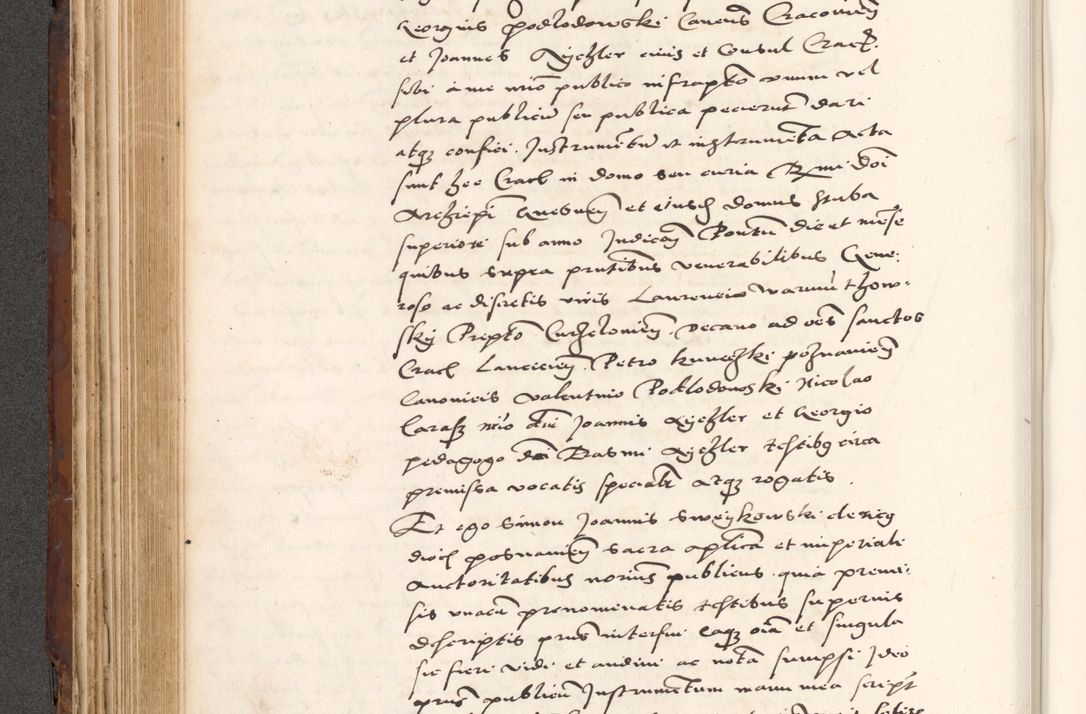 Georgius Podlodowski Canonicus Cracovien
et Joannes Aychler civis et Consul Crac.
sibi a me nrio publico infrapto unum vel
plura publicu seu publica pecierunt dari
atqz confici Instrumentu et instrumenta Acta
sunt hec Crac in domo seu curia Rmi doi
Archiepi Gnesnen et eiusd domus stuba
superiore sub anno Indicoe Pontu die et mese
quibus supra pntibus venerabilibus Gene:
roso ac discretis viris Laurencio
sky Prepto decano ad oes sanctos
Crac Lancicien Petro poznanien
Canonicis valentino Podlodowski Nicolao
nrio dni Joannis Aychler et Georgio
pedagogo doi Erasmi Aychler testibus circa
premissa vocatis specialr atqz rogatis.
Et ego Simon Joannis clericus
dioc posnanien sacra aplica et imperiali
Auctoritatibus norius publicus quia premi:
sis unacu prenomenatis testibus superius
descriptis pns interfui eaqz oia et singula
sic fieri vidi et audivi ac nota sumpsi Ideo
pns publicu Instrumentum manu mea script